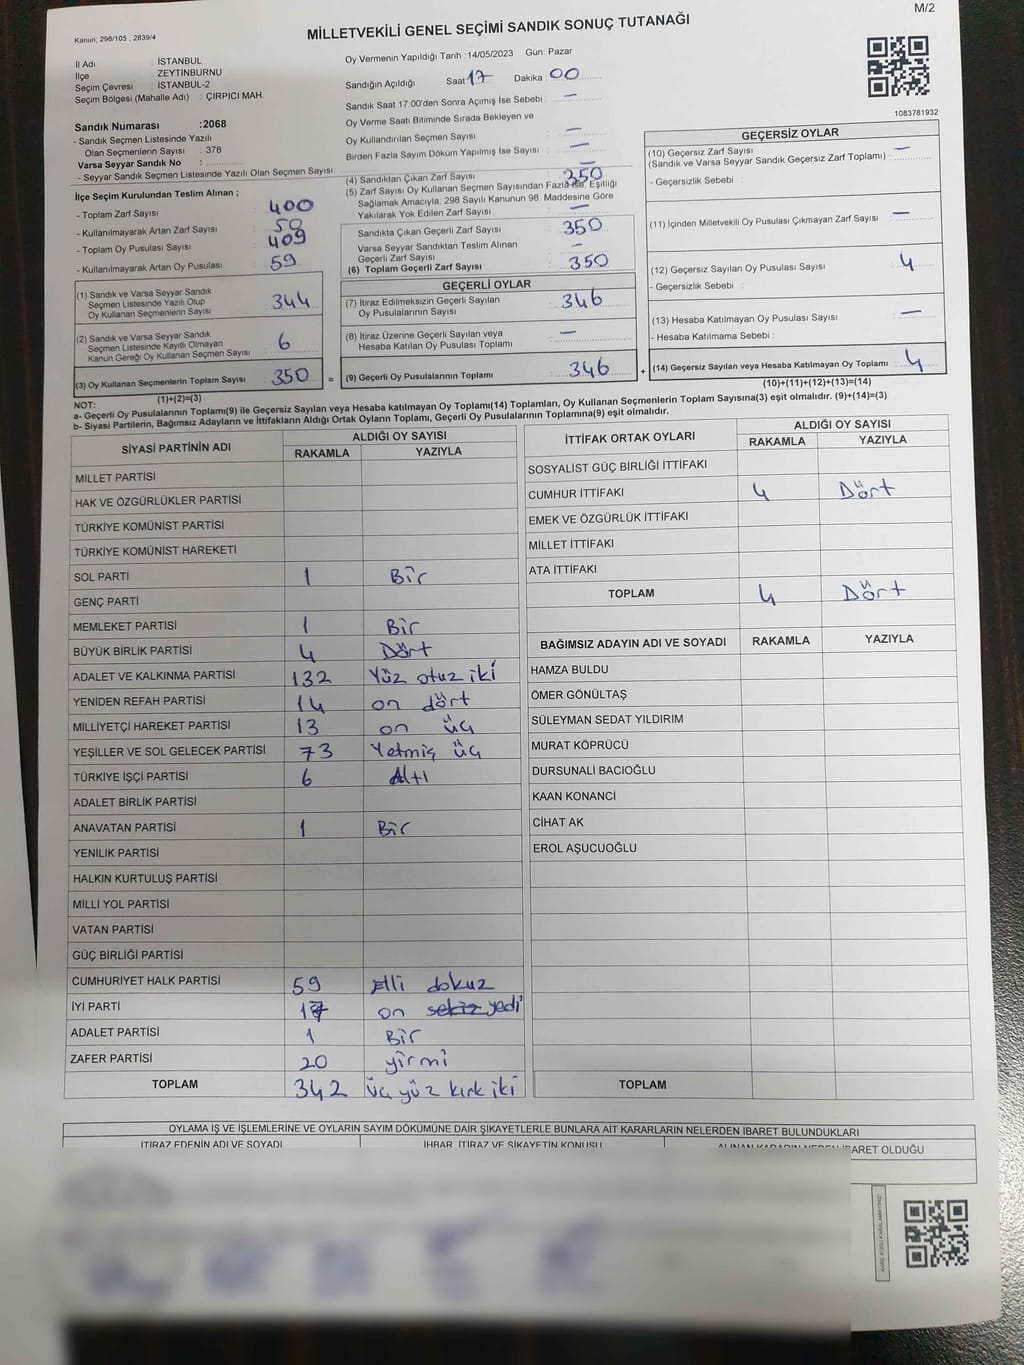 M/2
Kanun; 298/105 , 2839/4
MİLLETVEKİLİ GENEL SEÇİMİ SANDIK SONUÇ TUTANAĞI
İl Adı : İSTANBUL
İlçe : ZEYTİNBURNU
Seçim Çevresi : İSTANBUL-2
Seçim Bölgesi (Mahalle Adı) : ÇIRPICI MAH.
Sandık Numarası :2068
- Sandık Seçmen Listesinde Yazılı
Olan Seçmenlerin Sayısı : 378
Varsa Seyyar Sandık No :
- Seyyar Sandık Seçmen Listesinde Yazılı Olan Seçmen Sayısı
İlçe Seçim Kurulundan Teslim Alınan ;
- Toplam Zarf Sayısı : 400
- Kullanılmayarak Artan Zarf Sayısı : 50
- Toplam Oy Pusulası Sayısı : 409
- Kullanılmayarak Artan Oy Pusulası : 59
(1) Sandık ve Varsa Seyyar Sandık
Seçmen Listesinde Yazılı Olup
Oy Kullanan Seçmenlerin Sayısı : 344
(2) Sandık ve Varsa Seyyar Sandık
Seçmen Listesinde Kayıtlı Olmayan
Kanun Gereği Oy Kullanan Seçmen Sayısı : 6
(3) Oy Kullanan Seçmenlerin Toplam Sayısı : 350
(1)+(2)=(3)
Oy Vermenin Yapıldığı Tarih : 14/05/2023 Gün: Pazar
Sandığın Açıldığı Saat 17 Dakika 00
Sandık Saat 17:00'den Sonra Açımış İse Sebebi : —
Oy Verme Saati Bitiminde Sırada Bekleyen ve
Oy Kullandırılan Seçmen Sayısı : —
Birden Fazla Sayım Döküm Yapılmış İse Sayısı : —
(4) Sandıktan Çıkan Zarf Sayısı : 350
(5) Zarf Sayısı Oy Kullanan Seçmen Sayısından Fazla İse, Eşitliği
Sağlamak Amacıyla, 298 Sayılı Kanunun 98. Maddesine Göre
Yakılarak Yok Edilen Zarf Sayısı : —
Sandıkta Çıkan Geçerli Zarf Sayısı : 350
Varsa Seyyar Sandıktan Teslim Alınan
Geçerli Zarf Sayısı : —
(6) Toplam Geçerli Zarf Sayısı : 350
GEÇERLİ OYLAR
(7) İtiraz Edilmeksizin Geçerli Sayılan
Oy Pusulalarının Sayısı : 346
(8) İtiraz Üzerine Geçerli Sayılan veya
Hesaba Katılan Oy Pusulası Toplamı : —
= (9) Geçerli Oy Pusulalarının Toplamı : 346
1083781932
GEÇERSİZ OYLAR
(10) Geçersiz Zarf Sayısı
(Sandık ve Varsa Seyyar Sandık Geçersiz Zarf Toplamı) : —
- Geçersizlik Sebebi :
(11) İçinden Milletvekili Oy Pusulası Çıkmayan Zarf Sayısı : —
(12) Geçersiz Sayılan Oy Pusulası Sayısı : 4
- Geçersizlik Sebebi :
(13) Hesaba Katılmayan Oy Pusulası Sayısı : —
- Hesaba Katılmama Sebebi :
+ (14) Geçersiz Sayılan veya Hesaba Katılmayan Oy Toplamı : 4
(10)+(11)+(12)+(13)=(14)
NOT:
a- Geçerli Oy Pusulalarının Toplamı(9) ile Geçersiz Sayılan veya Hesaba katılmayan Oy Toplamı(14) Toplamları, Oy Kullanan Seçmenlerin Toplam Sayısına(3) eşit olmalıdır. (9)+(14)=(3)
b- Siyasi Partilerin, Bağımsız Adayların ve İttifakların Aldığı Ortak Oyların Toplamı, Geçerli Oy Pusulalarının Toplamına(9) eşit olmalıdır.
SİYASİ PARTİNİN ADI ALDIĞI OY SAYISI
RAKAMLA YAZIYLA
MİLLET PARTİSİ
HAK VE ÖZGÜRLÜKLER PARTİSİ
TÜRKİYE KOMÜNİST PARTİSİ
TÜRKİYE KOMÜNİST HAREKETİ
SOL PARTİ 1 Bir
GENÇ PARTİ
MEMLEKET PARTİSİ 1 Bir
BÜYÜK BİRLİK PARTİSİ 4 Dört
ADALET VE KALKINMA PARTİSİ 132 Yüz otuz iki
YENİDEN REFAH PARTİSİ 14 on dört
MİLLİYETÇİ HAREKET PARTİSİ 13 on üç
YEŞİLLER VE SOL GELECEK PARTİSİ 73 Yetmiş üç
TÜRKİYE İŞÇİ PARTİSİ 6 Altı
ADALET BİRLİK PARTİSİ
ANAVATAN PARTİSİ 1 Bir
YENİLİK PARTİSİ
HALKIN KURTULUŞ PARTİSİ
MİLLİ YOL PARTİSİ
VATAN PARTİSİ
GÜÇ BİRLİĞİ PARTİSİ
CUMHURİYET HALK PARTİSİ 59 Elli dokuz
İYİ PARTİ 17 on sekiz yedi
ADALET PARTİSİ 1 Bir
ZAFER PARTİSİ 20 yirmi
TOPLAM 342 üç yüz kırk iki
İTTİFAK ORTAK OYLARI ALDIĞI OY SAYISI
RAKAMLA YAZIYLA
SOSYALİST GÜÇ BİRLİĞİ İTTİFAKI
CUMHUR İTTİFAKI 4 Dört
EMEK VE ÖZGÜRLÜK İTTİFAKI
MİLLET İTTİFAKI
ATA İTTİFAKI
TOPLAM 4 Dört
BAĞIMSIZ ADAYIN ADI VE SOYADI RAKAMLA YAZIYLA
HAMZA BULDU
ÖMER GÖNÜLTAŞ
SÜLEYMAN SEDAT YILDIRIM
MURAT KÖPRÜCÜ
DURSUNALİ BACIOĞLU
KAAN KONANCİ
CİHAT AK
EROL AŞUCUOĞLU
TOPLAM
OYLAMA İŞ VE İŞLEMLERİNE VE OYLARIN SAYIM DÖKÜMÜNE DAİR ŞİKAYETLERLE BUNLARA AİT KARARLARIN NELERDEN İBARET BULUNDUKLARI
İTİRAZ EDENİN ADI VE SOYADI İHBAR, İTİRAZ VE ŞİKAYETİN KONUSU ALINAN KARARIN NEDEN İBARET OLDUĞU